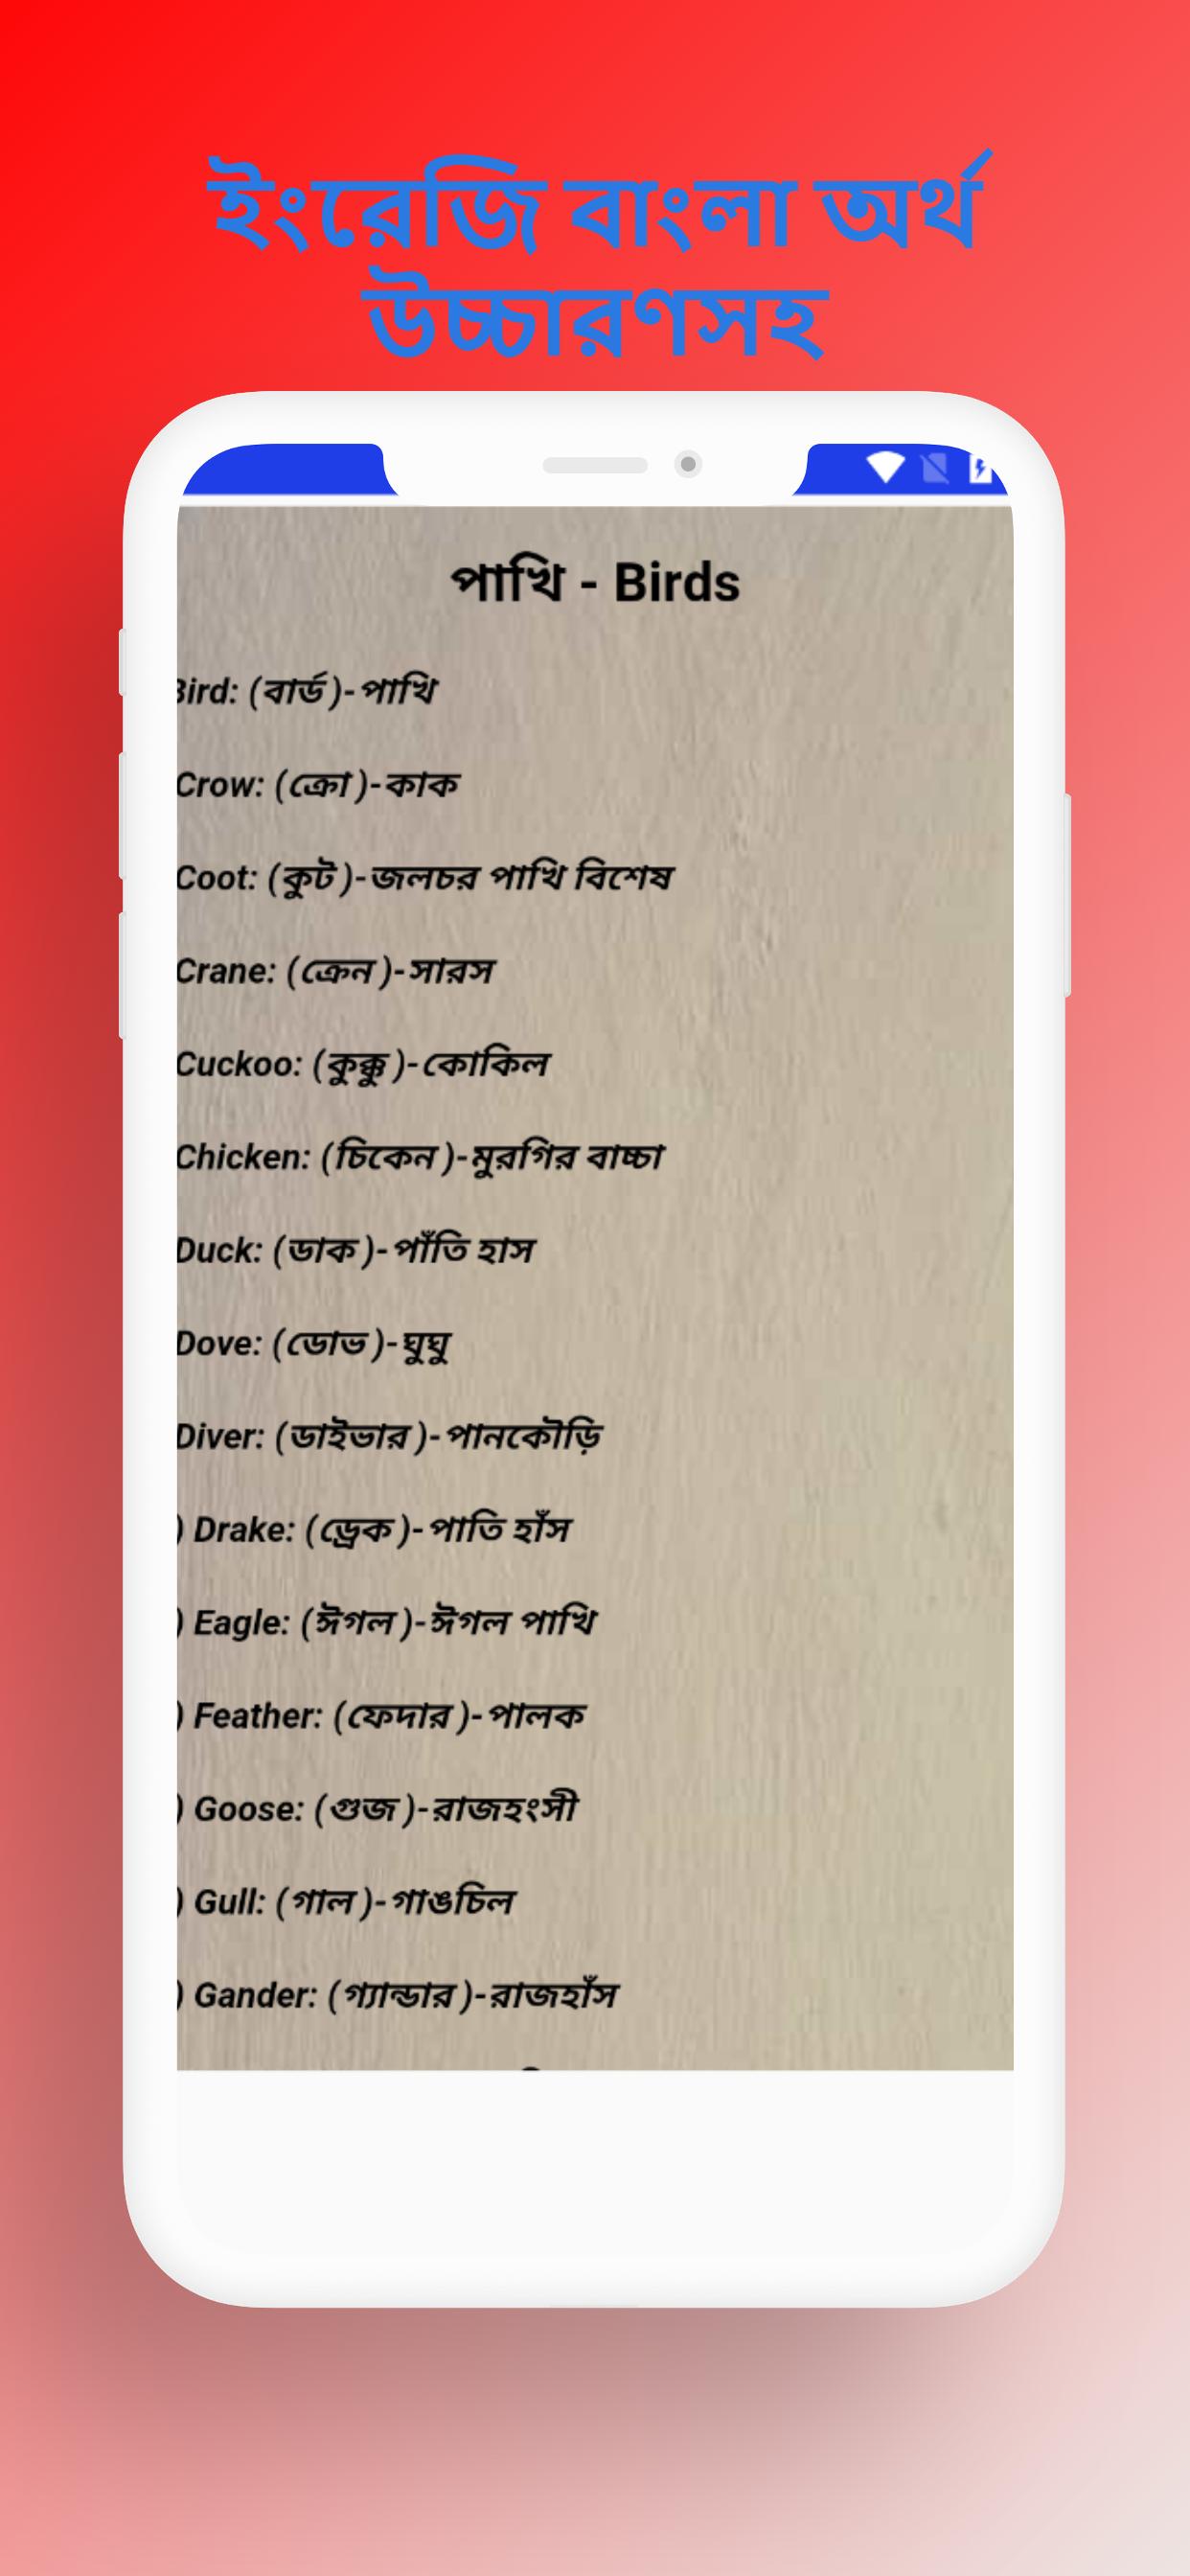 ইংরেজি বাংলা অর্থ
উচ্চারণসহ
পাখি - Birds
Bird: (বার্ড)-পাখি
Crow: (ক্রো)-কাক
Coot: (কুট)-জলচর পাখি বিশেষ
Crane: (ক্রেন)-সারস
Cuckoo: (কুক্কু)-কোকিল
Chicken: (চিকেন)-মুরগির বাচ্চা
Duck: (ডাক)-পাঁতি হাস
Dove: (ডোভ)-ঘুঘু
Diver: (ডাইভার)-পানকৌড়ি
) Drake: (ড্রেক)-পাতি হাঁস
) Eagle: (ঈগল)-ঈগল পাখি
) Feather: (ফেদার)-পালক
) Goose: (গুজ)-রাজহংসী
) Gull: (গাল)-গাঙচিল
) Gander: (গ্যান্ডার)-রাজহাঁস